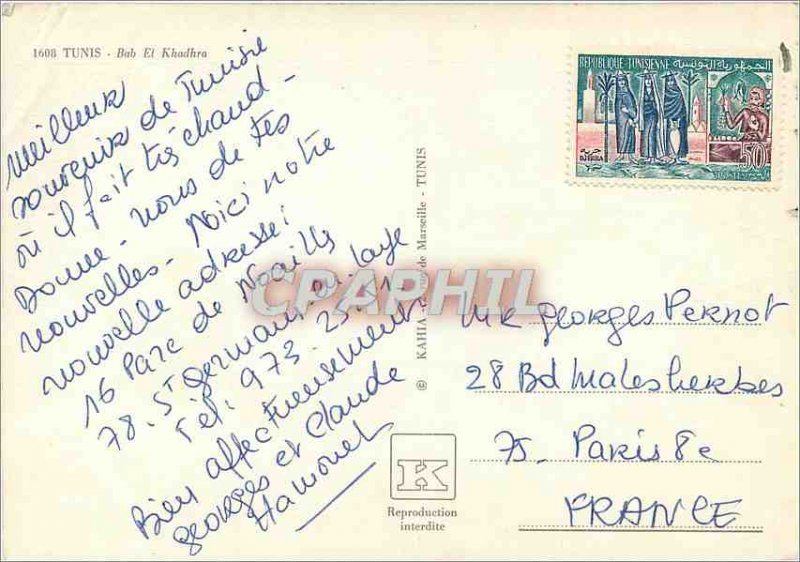 1608 TUNIS - Bab El Khadhra
Meilleurs
souvenirs de Tunisie
où il fait très chaud -
Donne - nous de tes
nouvelles - Voici notre
nouvelle adresse :
16 Parc de Noailles
78. St Germain en Laye
Tél. 973. 25.
Bien affectueusement
georges et Claude
Hamonet
© KAHIA rue de Marseille - TUNIS
CPARPHIL
K
Reproduction
interdite
REPUBLIQUE TUNISIENNE الجمهورية التونسية
جربة
DJERBA
50
POSTES
Mr georges Pernot
28 Bd Malesherbes
75. Paris 8e
FRANCE